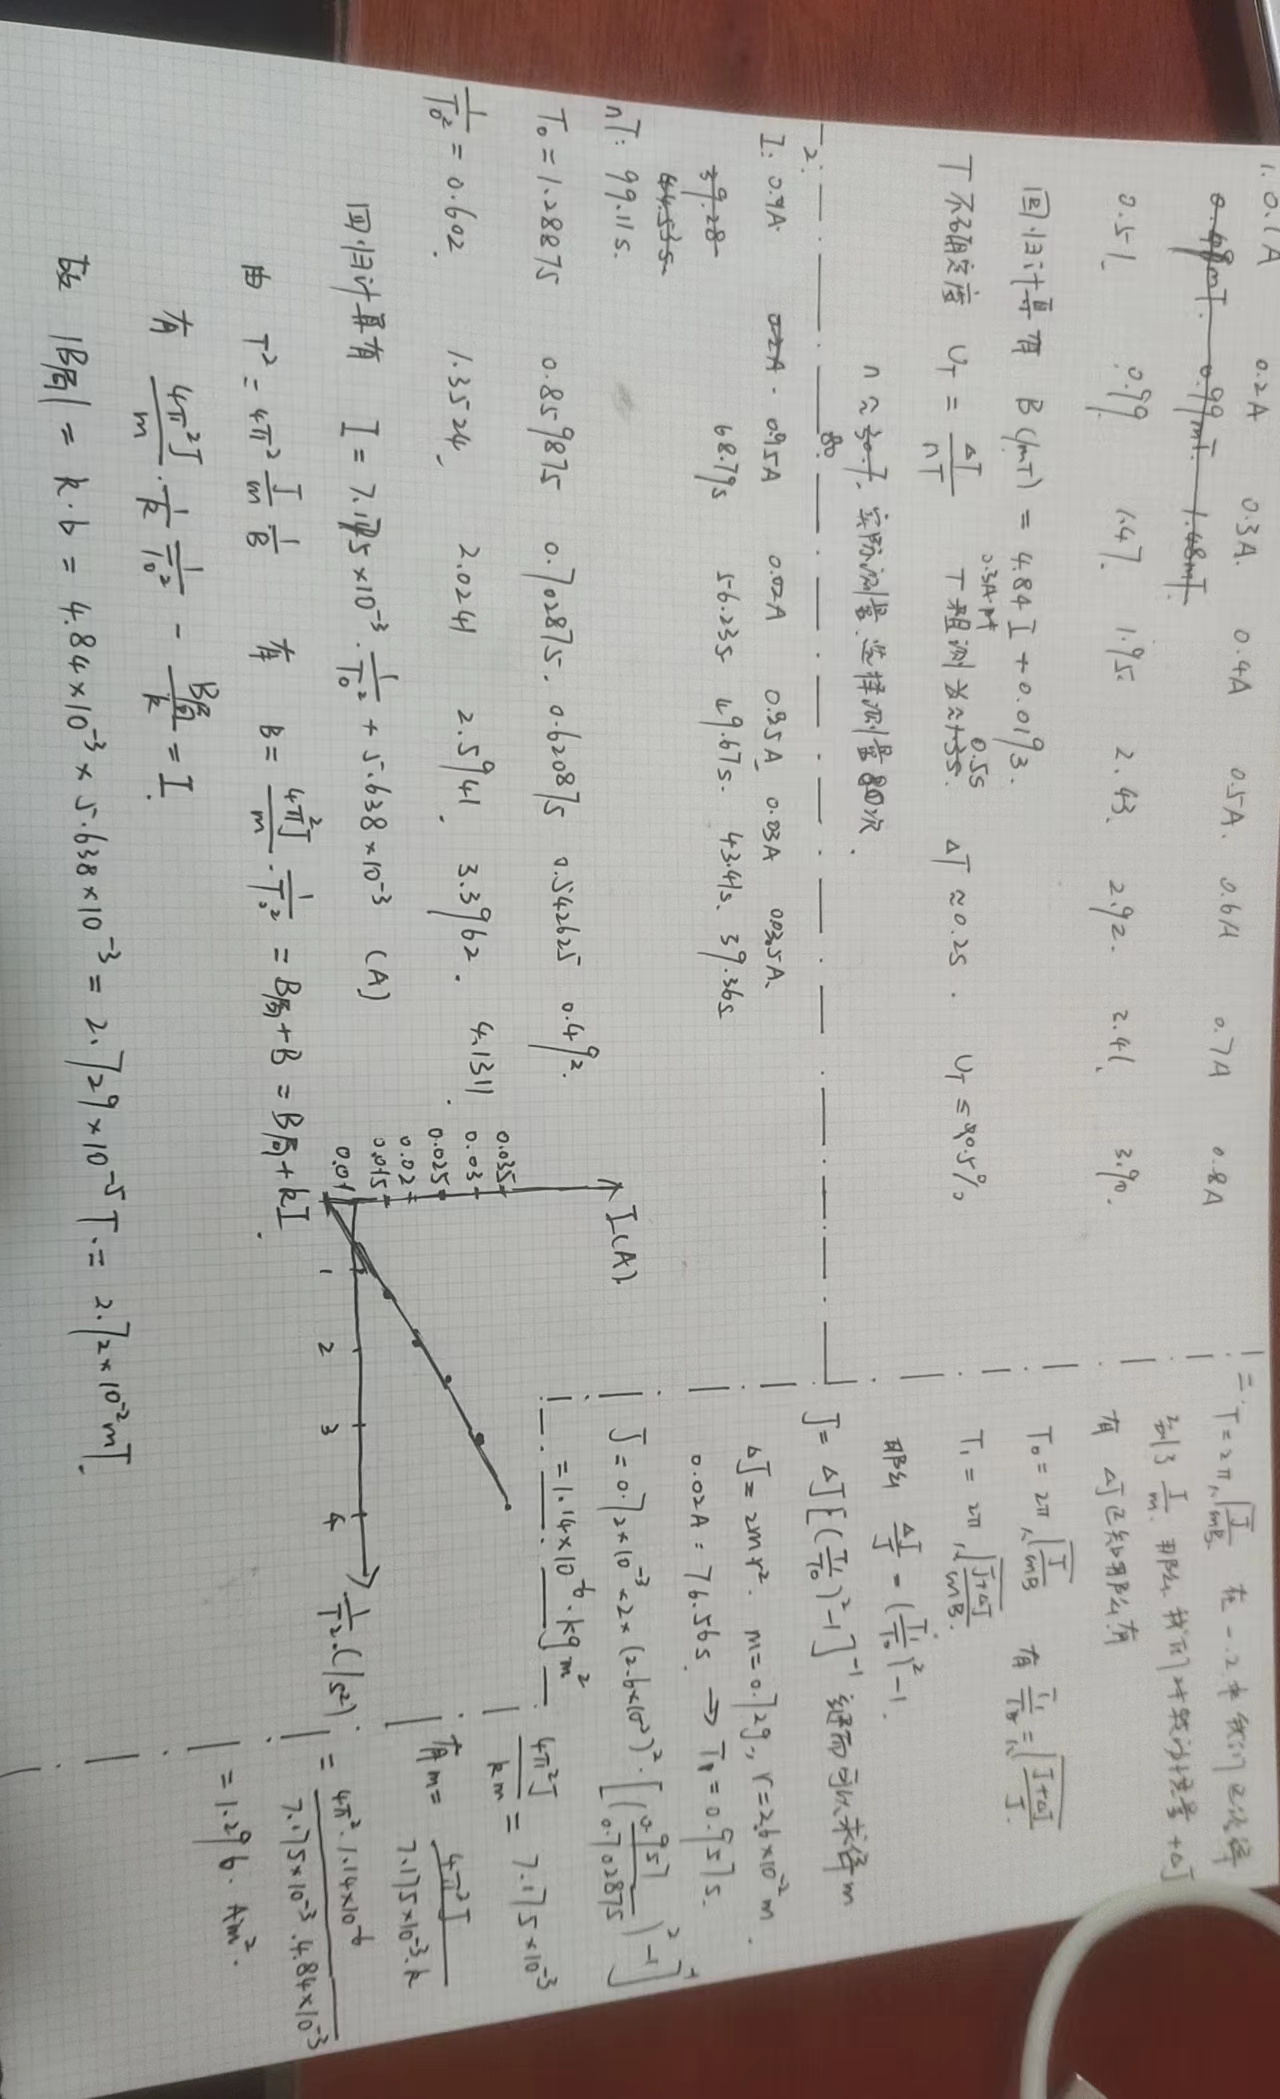 1. 0.1A 0.2A 0.3A. 0.4A 0.5A. 0.6A 0.7A 0.8A
0.48mT. 0.99mT. 1.48mT.
0.51. 0.99. 1.47. 1.95 2.43. 2.92. 3.41. 3.90.
回归计算有 B(/mT) = 4.84 I + 0.0193.
T不确定度 U_T = ΔT/nT 0.3A时 T粗测为≈1.3s. 0.5s ΔT≈0.2s. U_T ≤ 0.5%
n≈30.7. 80. 实际测量选择测量80次.
2:
I: 0.01A. 0.2A. 0.015A 0.02A 0.025A. 0.03A 0.035A.
39.28 68.79s 56.23s 49.67s. 43.41s. 39.36s
44.53s
nT: 99.11s.
T₀ = 1.28875 0.859875 0.702875. 0.620875 0.542625 0.492.
1/T₀² = 0.602. 1.3524. 2.0241 2.5941. 3.3962. 4.1311.
回归计算有 I = 7.175×10⁻³·1/T₀² + 5.638×10⁻³ (A)
由 T² = 4π² J/m 1/B 有 B = 4π²J/m · 1/T₀² = B局+B = B局+kI.
有 4π²J/m · 1/k 1/T₀² - B局/k = I.
故 |B局| = k·b = 4.84×10⁻³×5.638×10⁻³ = 2.729×10⁻⁵T. = 2.72×10⁻²mT.
I(A).
0.035
0.03
0.025
0.02
0.015
0.01
1 2 3 4 1/T². (/s²)
二. T = 2π√(J/mB) 在一.2中我们已经得
到了 J/m. 那么我们对转动惯量+ΔJ
有 ΔJ已知那么有
T₀ = 2π√(J/mB) 有 T₁/T₀ = √((J+ΔJ)/J)
T₁ = 2π√((J+ΔJ)/mB).
那么 ΔJ/J = (T₁/T₀)²-1.
J = ΔJ[(T₁/T₀)²-1]⁻¹ 继而可以求得m
ΔJ = 2mr². m=0.72g, r=2.6×10⁻²m.
0.02A: 76.56s. → T₁ = 0.957s.
J = 0.72×10⁻³×2×(2.6×10⁻²)²·[(0.957/0.702875)²-1]⁻¹
= 1.14×10⁻⁶·kgm²
4π²J/km = 7.175×10⁻³
有 m = 4π²J/7.175×10⁻³·k
= 4π²·1.14×10⁻⁶/7.175×10⁻³·4.84×10⁻³
= 1.296·Am².